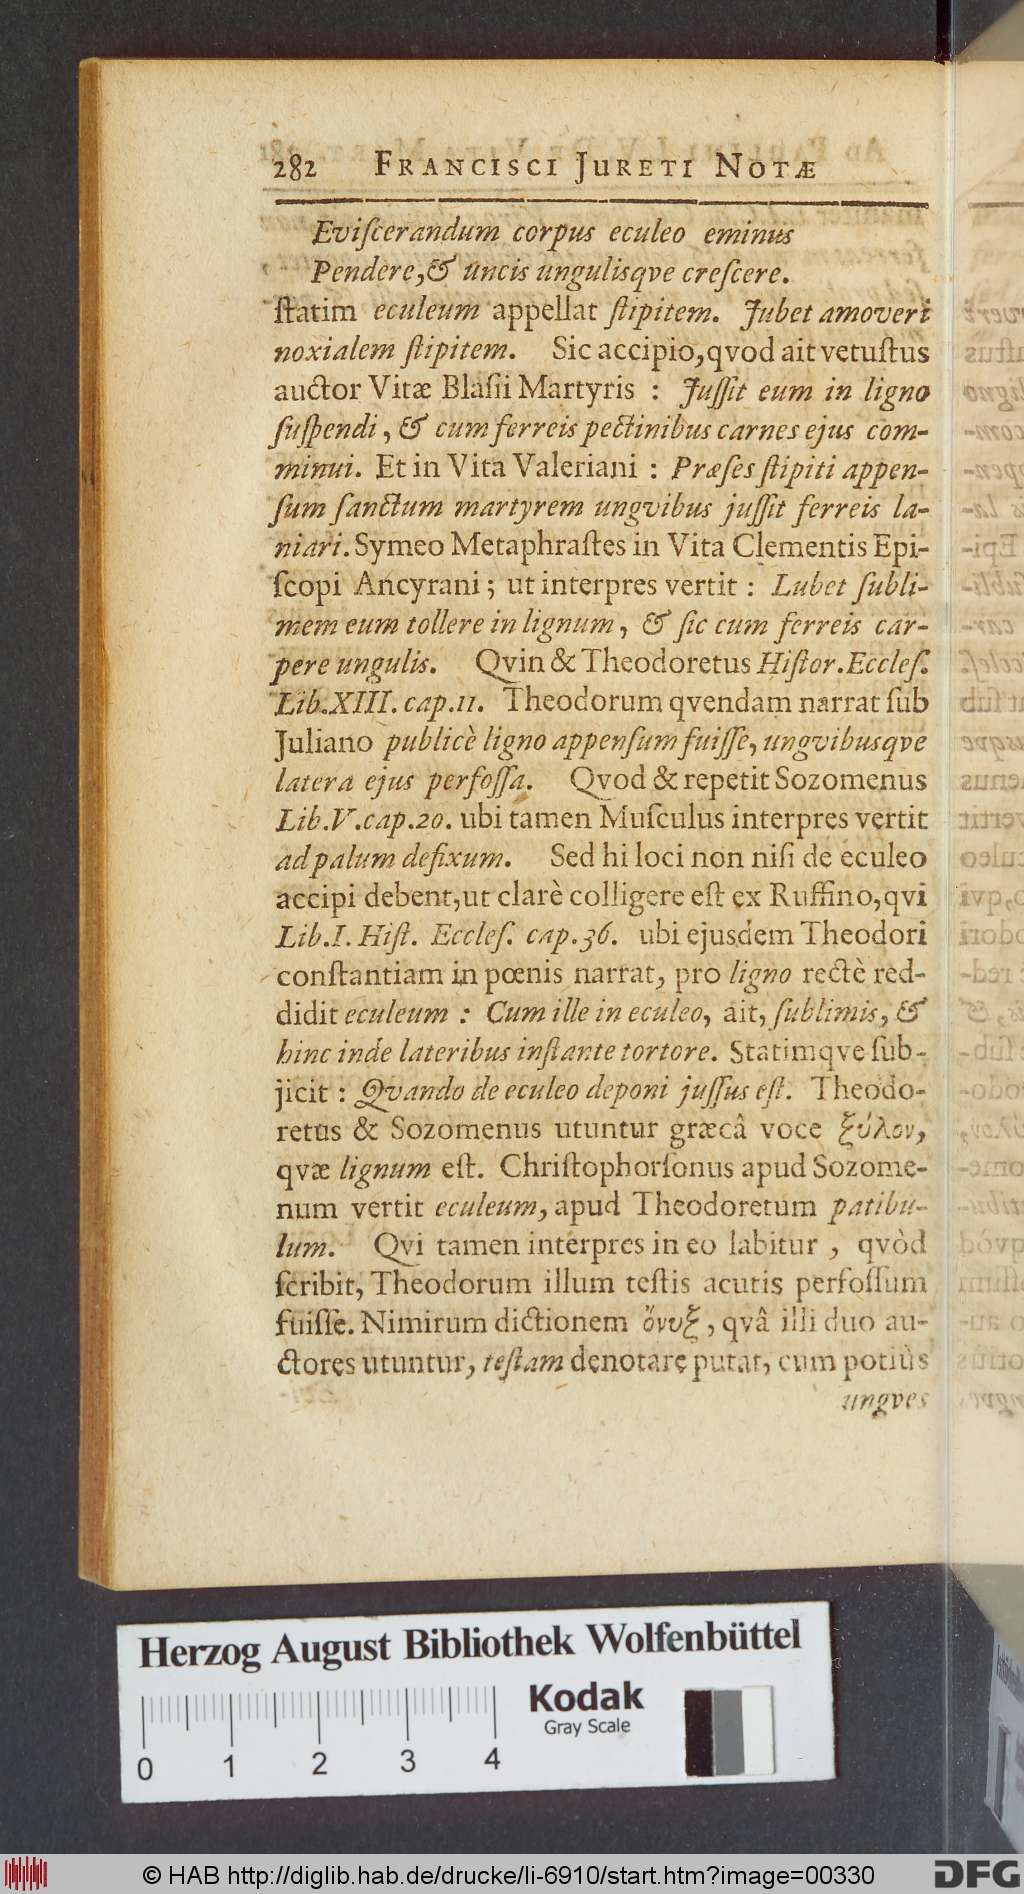 282 FRANCISCI JURETI NOTÆ
Eviſcerandum corpus eculeo eminus
Pendere, & uncis ungulisqve creſcere.
ſtatim eculeum appellat ſtipitem. Jubet amoveri
noxialem ſtipitem. Sic accipio, qvod ait vetuſtus
auctor Vitæ Blaſii Martyris : Juſſit eum in ligno
ſuſpendi, & cum ferreis pectinibus carnes ejus com-
minui. Et in Vita Valeriani : Præſes ſtipiti appen-
ſum ſanctum martyrem ungvibus juſſit ferreis la-
niari. Symeo Metaphraſtes in Vita Clementis Epi-
ſcopi Ancyrani ; ut interpres vertit : Lubet ſubli-
mem eum tollere in lignum, & ſic cum ferreis car-
pere ungulis. Qvin & Theodoretus Hiſtor. Eccleſ.
Lib. XIII. cap. 11. Theodorum qvendam narrat ſub
Juliano publicè ligno appenſum fuiſſe, ungvibusqve
latera ejus perfoſſa. Qvod & repetit Sozomenus
Lib. V. cap. 20. ubi tamen Muſculus interpres vertit
ad palum defixum. Sed hi loci non niſi de eculeo
accipi debent, ut clarè colligere eſt ex Ruffino, qvi
Lib. I. Hiſt. Eccleſ. cap. 36. ubi ejusdem Theodori
conſtantiam in pœnis narrat, pro ligno rectè red-
didit eculeum : Cum ille in eculeo, ait, ſublimis, &
hinc inde lateribus inſtante tortore. Statimqve ſub-
jicit : Qvando de eculeo deponi juſſus eſt. Theodo-
retus & Sozomenus utuntur græcâ voce ξύλον,
qvæ lignum eſt. Chriſtophorſonus apud Sozome-
num vertit eculeum, apud Theodoretum patibu-
lum. Qvi tamen interpres in eo labitur, qvòd
ſcribit, Theodorum illum teſtis acutis perfoſſum
fuiſſe. Nimirum dictionem ὄνυξ, qvâ illi duo au-
ctores utuntur, teſtam denotare putat, cum potiùs
ungves
Herzog August Bibliothek Wolfenbüttel
Kodak
Gray Scale
0 1 2 3 4
© HAB http://diglib.hab.de/drucke/li-6910/start.htm?image=00330
DFG